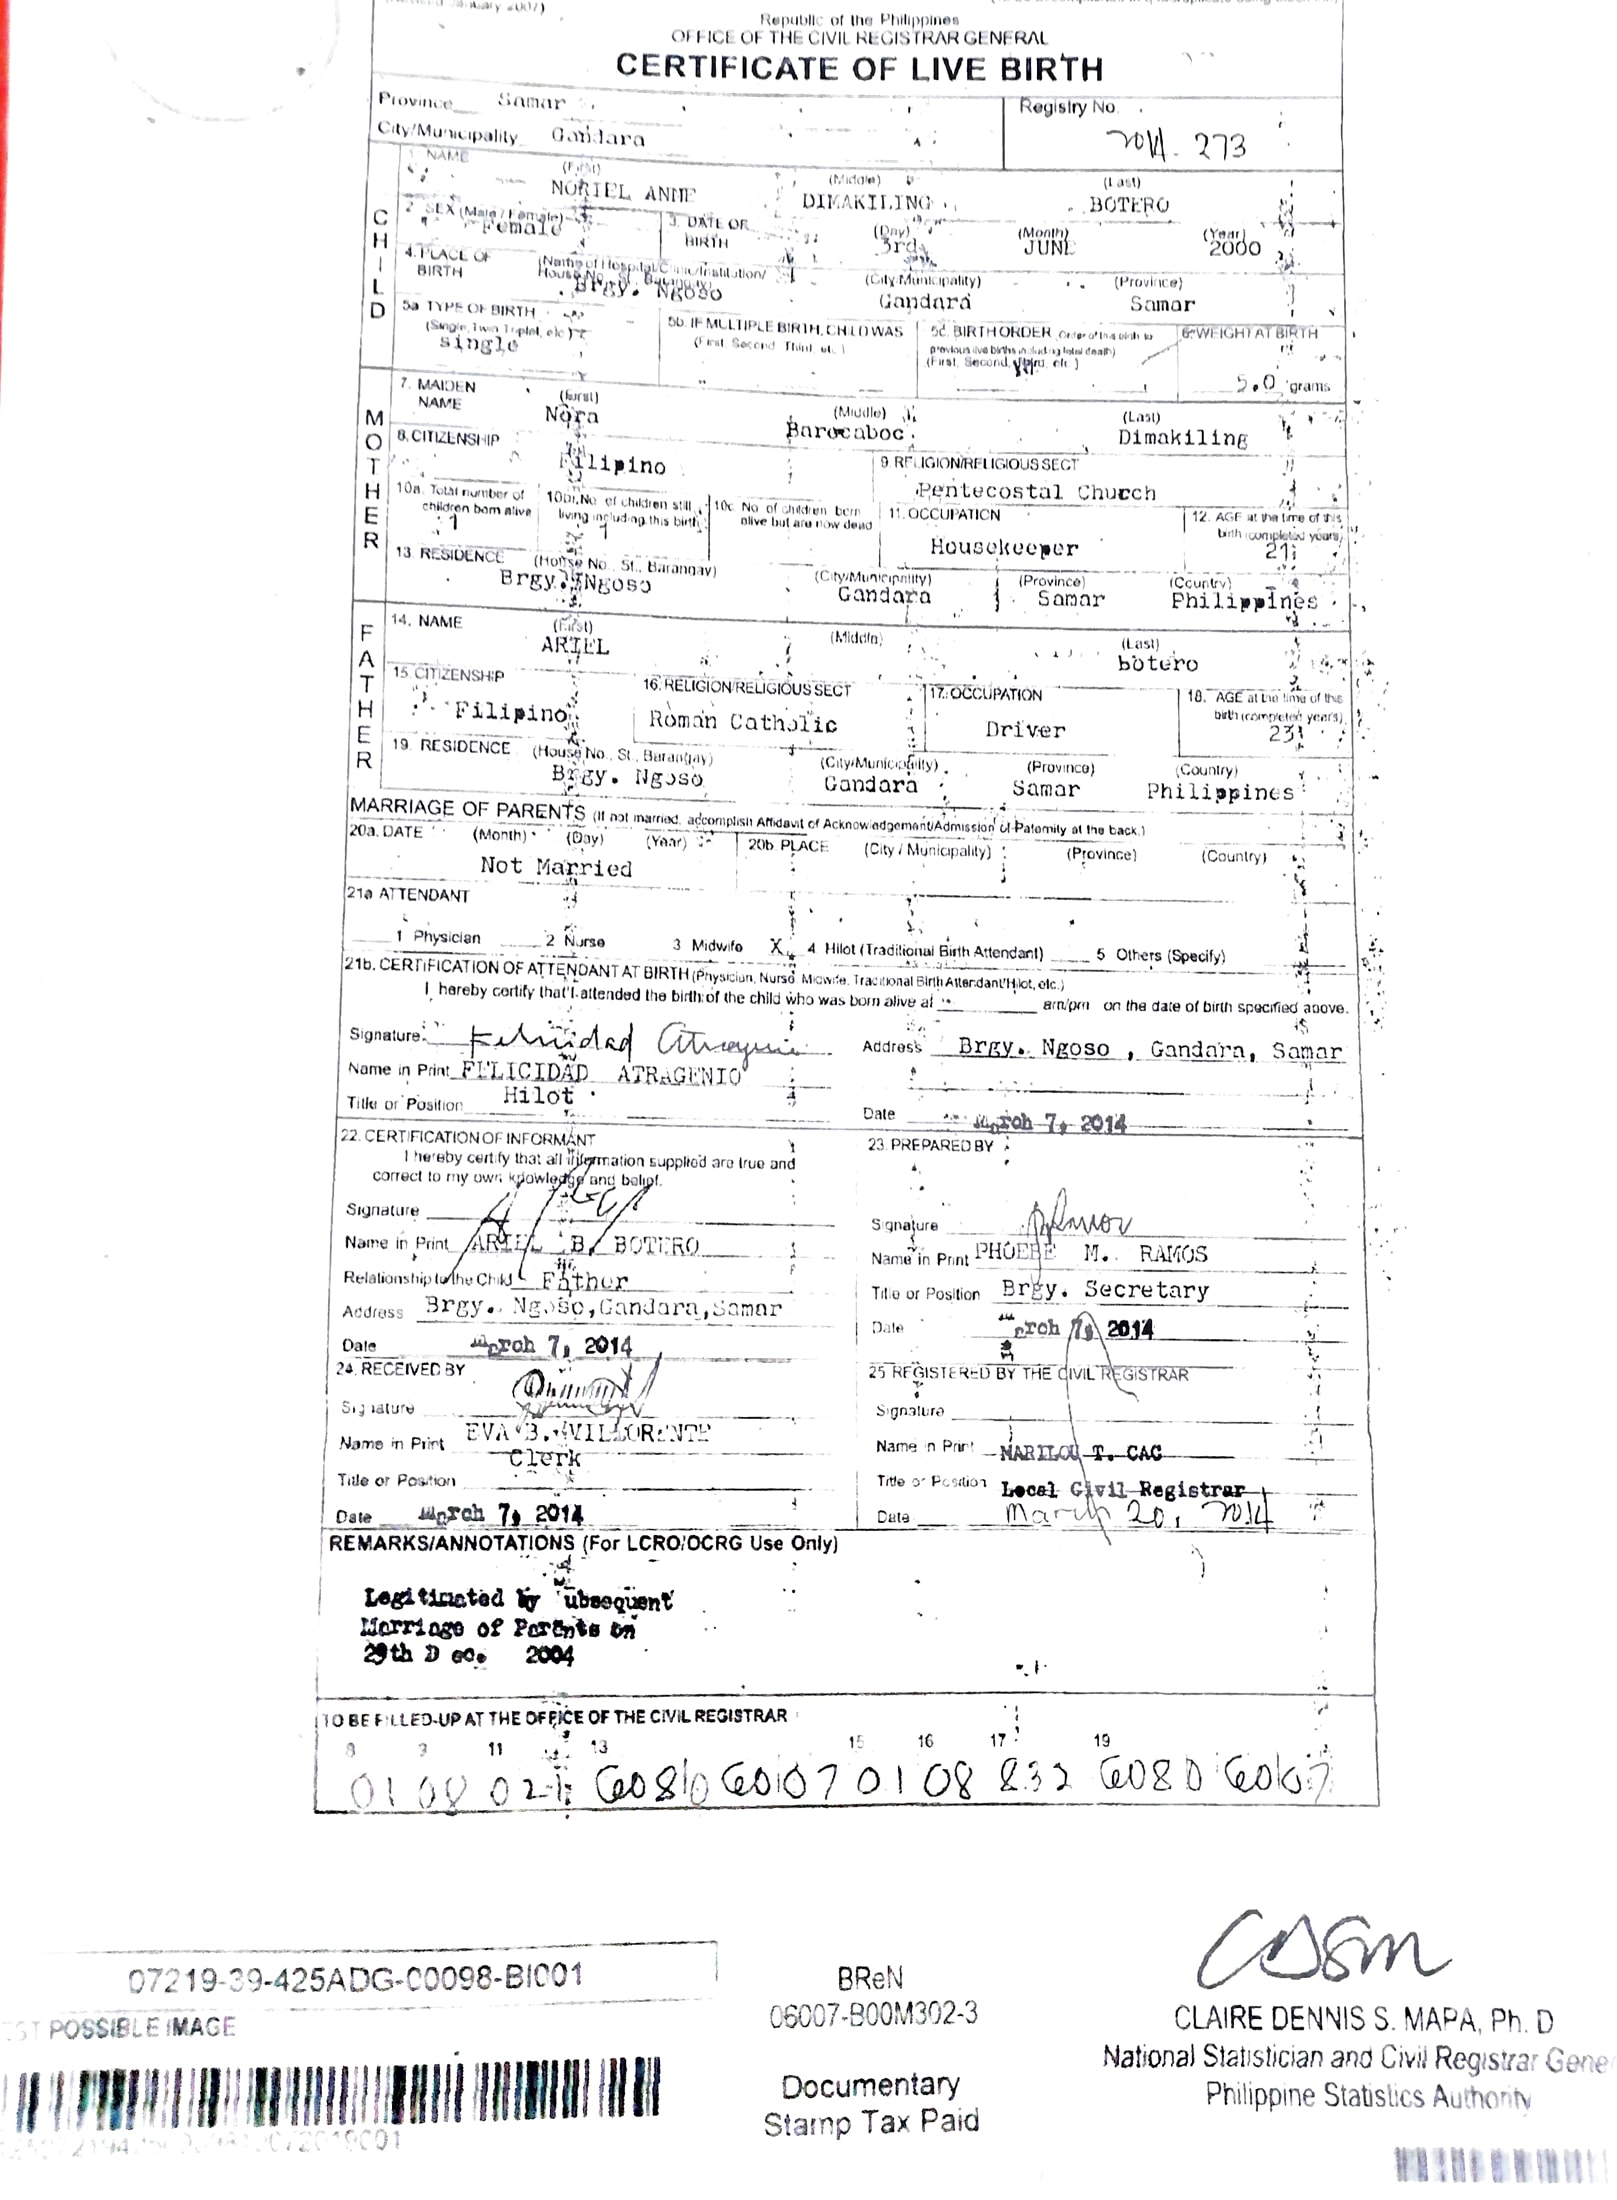 January 2007)
Republic of the Philippines
OFFICE OF THE CIVIL REGISTRAR GENERAL
CERTIFICATE OF LIVE BIRTH
Province Samar
Registry No.
City/Municipality Gandara
2014. 273
CHILD
1. NAME (First) (Middle) (Last)
NORIEL ANNE DIMAKILING BOTERO
2. SEX (Male / Female) 3. DATE OF BIRTH (Day) (Month) (Year)
Female 3rd JUNE 2000
4. PLACE OF BIRTH (Name of Hospital/Clinic/Institution/ House No., St., Barangay) (City/Municipality) (Province)
Brgy. Ngoso Gandara Samar
5a TYPE OF BIRTH (Single, Twin, Triplet, etc.) 5b. IF MULTIPLE BIRTH, CHILD WAS (First, Second, Third, etc.) 5c. BIRTH ORDER (First, Second, Third, etc.) 6. WEIGHT AT BIRTH
single
5.0 grams
MOTHER
7. MAIDEN NAME (First) (Middle) (Last)
Nora Barocaboc Dimakiling
8. CITIZENSHIP 9. RELIGION/RELIGIOUS SECT
Filipino Pentecostal Church
10a. Total number of children born alive 10b. No. of children still living including this birth 10c. No. of children born alive but are now dead 11. OCCUPATION 12. AGE at the time of this birth (completed years)
1 1 Housekeeper 21
13. RESIDENCE (House No., St., Barangay) (City/Municipality) (Province) (Country)
Brgy. Ngoso Gandara Samar Philippines
FATHER
14. NAME (First) (Middle) (Last)
ARIEL botero
15. CITIZENSHIP 16. RELIGION/RELIGIOUS SECT 17. OCCUPATION 18. AGE at the time of this birth (completed years)
Filipino Roman Catholic Driver 23
19. RESIDENCE (House No., St., Barangay) (City/Municipality) (Province) (Country)
Brgy. Ngoso Gandara Samar Philippines
MARRIAGE OF PARENTS (If not married, accomplish Affidavit of Acknowledgement/Admission of Paternity at the back.)
20a. DATE (Month) (Day) (Year) 20b. PLACE (City / Municipality) (Province) (Country)
Not Married
21a ATTENDANT
1 Physician 2 Nurse 3 Midwife X 4 Hilot (Traditional Birth Attendant) 5 Others (Specify)
21b. CERTIFICATION OF ATTENDANT AT BIRTH (Physician, Nurse, Midwife, Traditional Birth Attendant/Hilot, etc.)
I hereby certify that I attended the birth of the child who was born alive at am/pm on the date of birth specified above.
Signature Felicidad Address Brgy. Ngoso , Gandara, Samar
Name in Print FELICIDAD ATRAGENIO
Title or Position Hilot
Date March 7, 2014
22. CERTIFICATION OF INFORMANT
I hereby certify that all information supplied are true and
correct to my own knowledge and belief.
Signature
Name in Print ARIEL B. BOTERO
Relationship to the Child Father
Address Brgy. Ngoso,Gandara,Samar
Date March 7, 2014
23. PREPARED BY
Signature Ramos
Name in Print PHOEBE M. RAMOS
Title or Position Brgy. Secretary
Date March 7, 2014
24. RECEIVED BY
Signature
Name in Print EVA B. VILLORENTE
Clerk
Title or Position
Date March 7, 2014
25 REGISTERED BY THE CIVIL REGISTRAR
Signature
Name in Print MARILOU T. CAC
Title or Position Local Civil Registrar
Date March 20, 2014
REMARKS/ANNOTATIONS (For LCRO/OCRG Use Only)
Legitimated by ubsequent
Marriage of Parents on
29th D ec. 2004
TO BE FILLED-UP AT THE OFFICE OF THE CIVIL REGISTRAR
8 9 11 13 15 16 17 19
01 08 021 60810 60107 01 08 832 6080 60107
07219-39-425ADG-00098-BI001
POSSIBLE IMAGE
BReN
06007-B00M302-3
Documentary
Stamp Tax Paid
CLAIRE DENNIS S. MAPA, Ph. D
National Statistician and Civil Registrar Gene
Philippine Statistics Authority